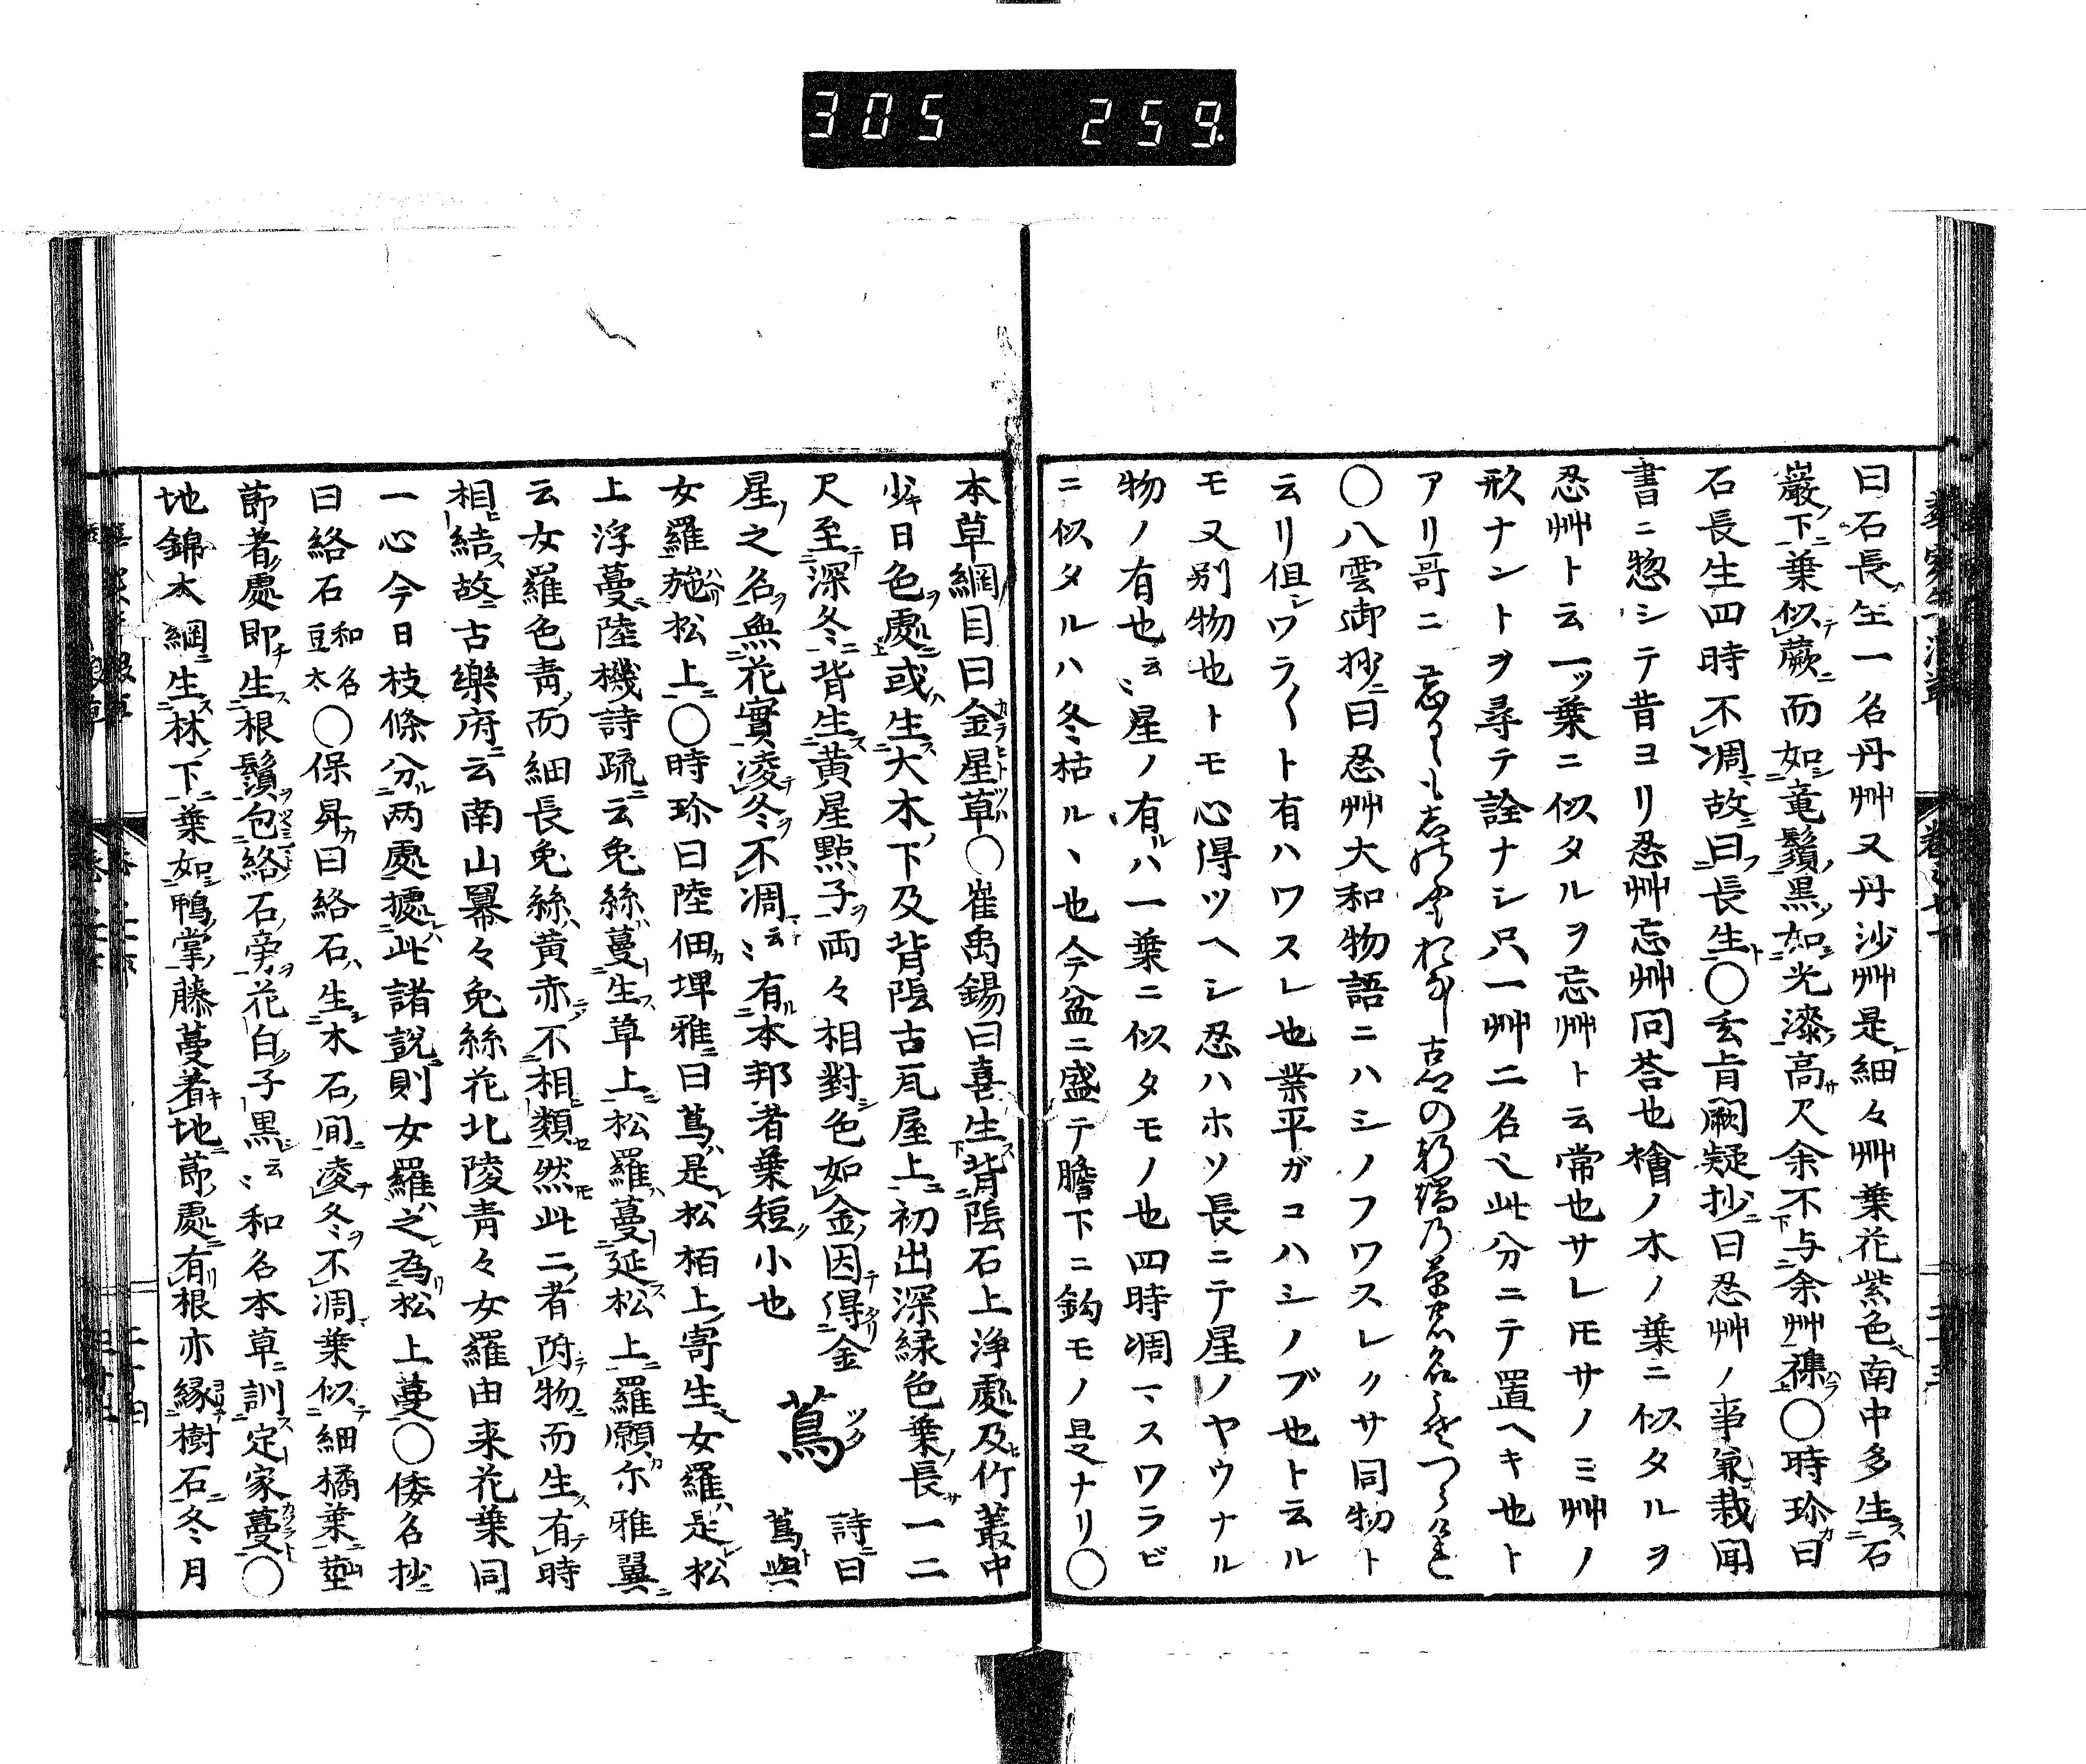 305 259
曰石長生一名丹艸又丹沙艸是細々艸葉花紫色南中多生石
巖下葉似蕨而如竜鬚黒如光漆高尺余不与余艸襍〇時珍曰
石長生四時不凋故曰長生〇玄旨闕疑抄曰忍艸ノ事兼栽聞
書ニ惣シテ昔ヨリ忍艸忘艸同荅也檜ノ木ノ葉ニ似タルヲ
忍艸ト云一ッ葉ニ似タルヲ忘艸ト云常也サレ𪜈サノミ艸ノ
形ナントヲ尋テ詮ナシ只一艸二名ヘ此分ニテ置ヘキ也ト
アリ哥ニ
〇八雲御抄曰忍艸大和物語ニハシノフワスレクサ同物ト
云リ但シワラ〱ト有ハワスレ也業平ガコハシノブ也ト云ル
モ又别物也トモ心得ツヘシ忍ハホソ長ニテ星ノヤウナル
物ノ有也云〻星ノ有ルハ一葉ニ似タモノ也四時凋マスワラビ
ニ似タルハ冬枯ルヽ也今盆ニ盛テ膽下ニ鈎モノ是ナリ〇
本草綱目曰金星草〇崔禹錫曰喜生背陰石上浄處及竹叢中
少日色處或生大木下及背陰古瓦屋上初出深緑色葉長一二
尺至深冬背生黄星點子両々相對色如金因得金
星之名無花實凌冬不凋云〻有本邦者葉短小也
蔦 ツタ 詩曰蔦與
女羅施松上〇時珍曰陸佃埤雅曰蔦是松栢上寄生女羅是松
上浮蔓陸機詩疏云兔絲蔓生草上松羅蔓延松上羅願尓雅翼
云女羅色青而細長兔絲黄赤不相類然此二者附物而生有時
相結故古樂府云南山冪々兔絲花北陵青々女羅由来花葉同
一心今日枝條分两處據此諸説則女羅之為松上蔓〇倭名抄
曰絡石和名豆太〇保昇曰絡石生木石間凌冬不凋葉似細橘葉莖
節着處即生根鬚包絡石旁花白子黒云〻和名本草訓定家蔓〇
地錦大綱生林下葉如鴨掌藤蔓着地節處有根亦縁樹石冬月